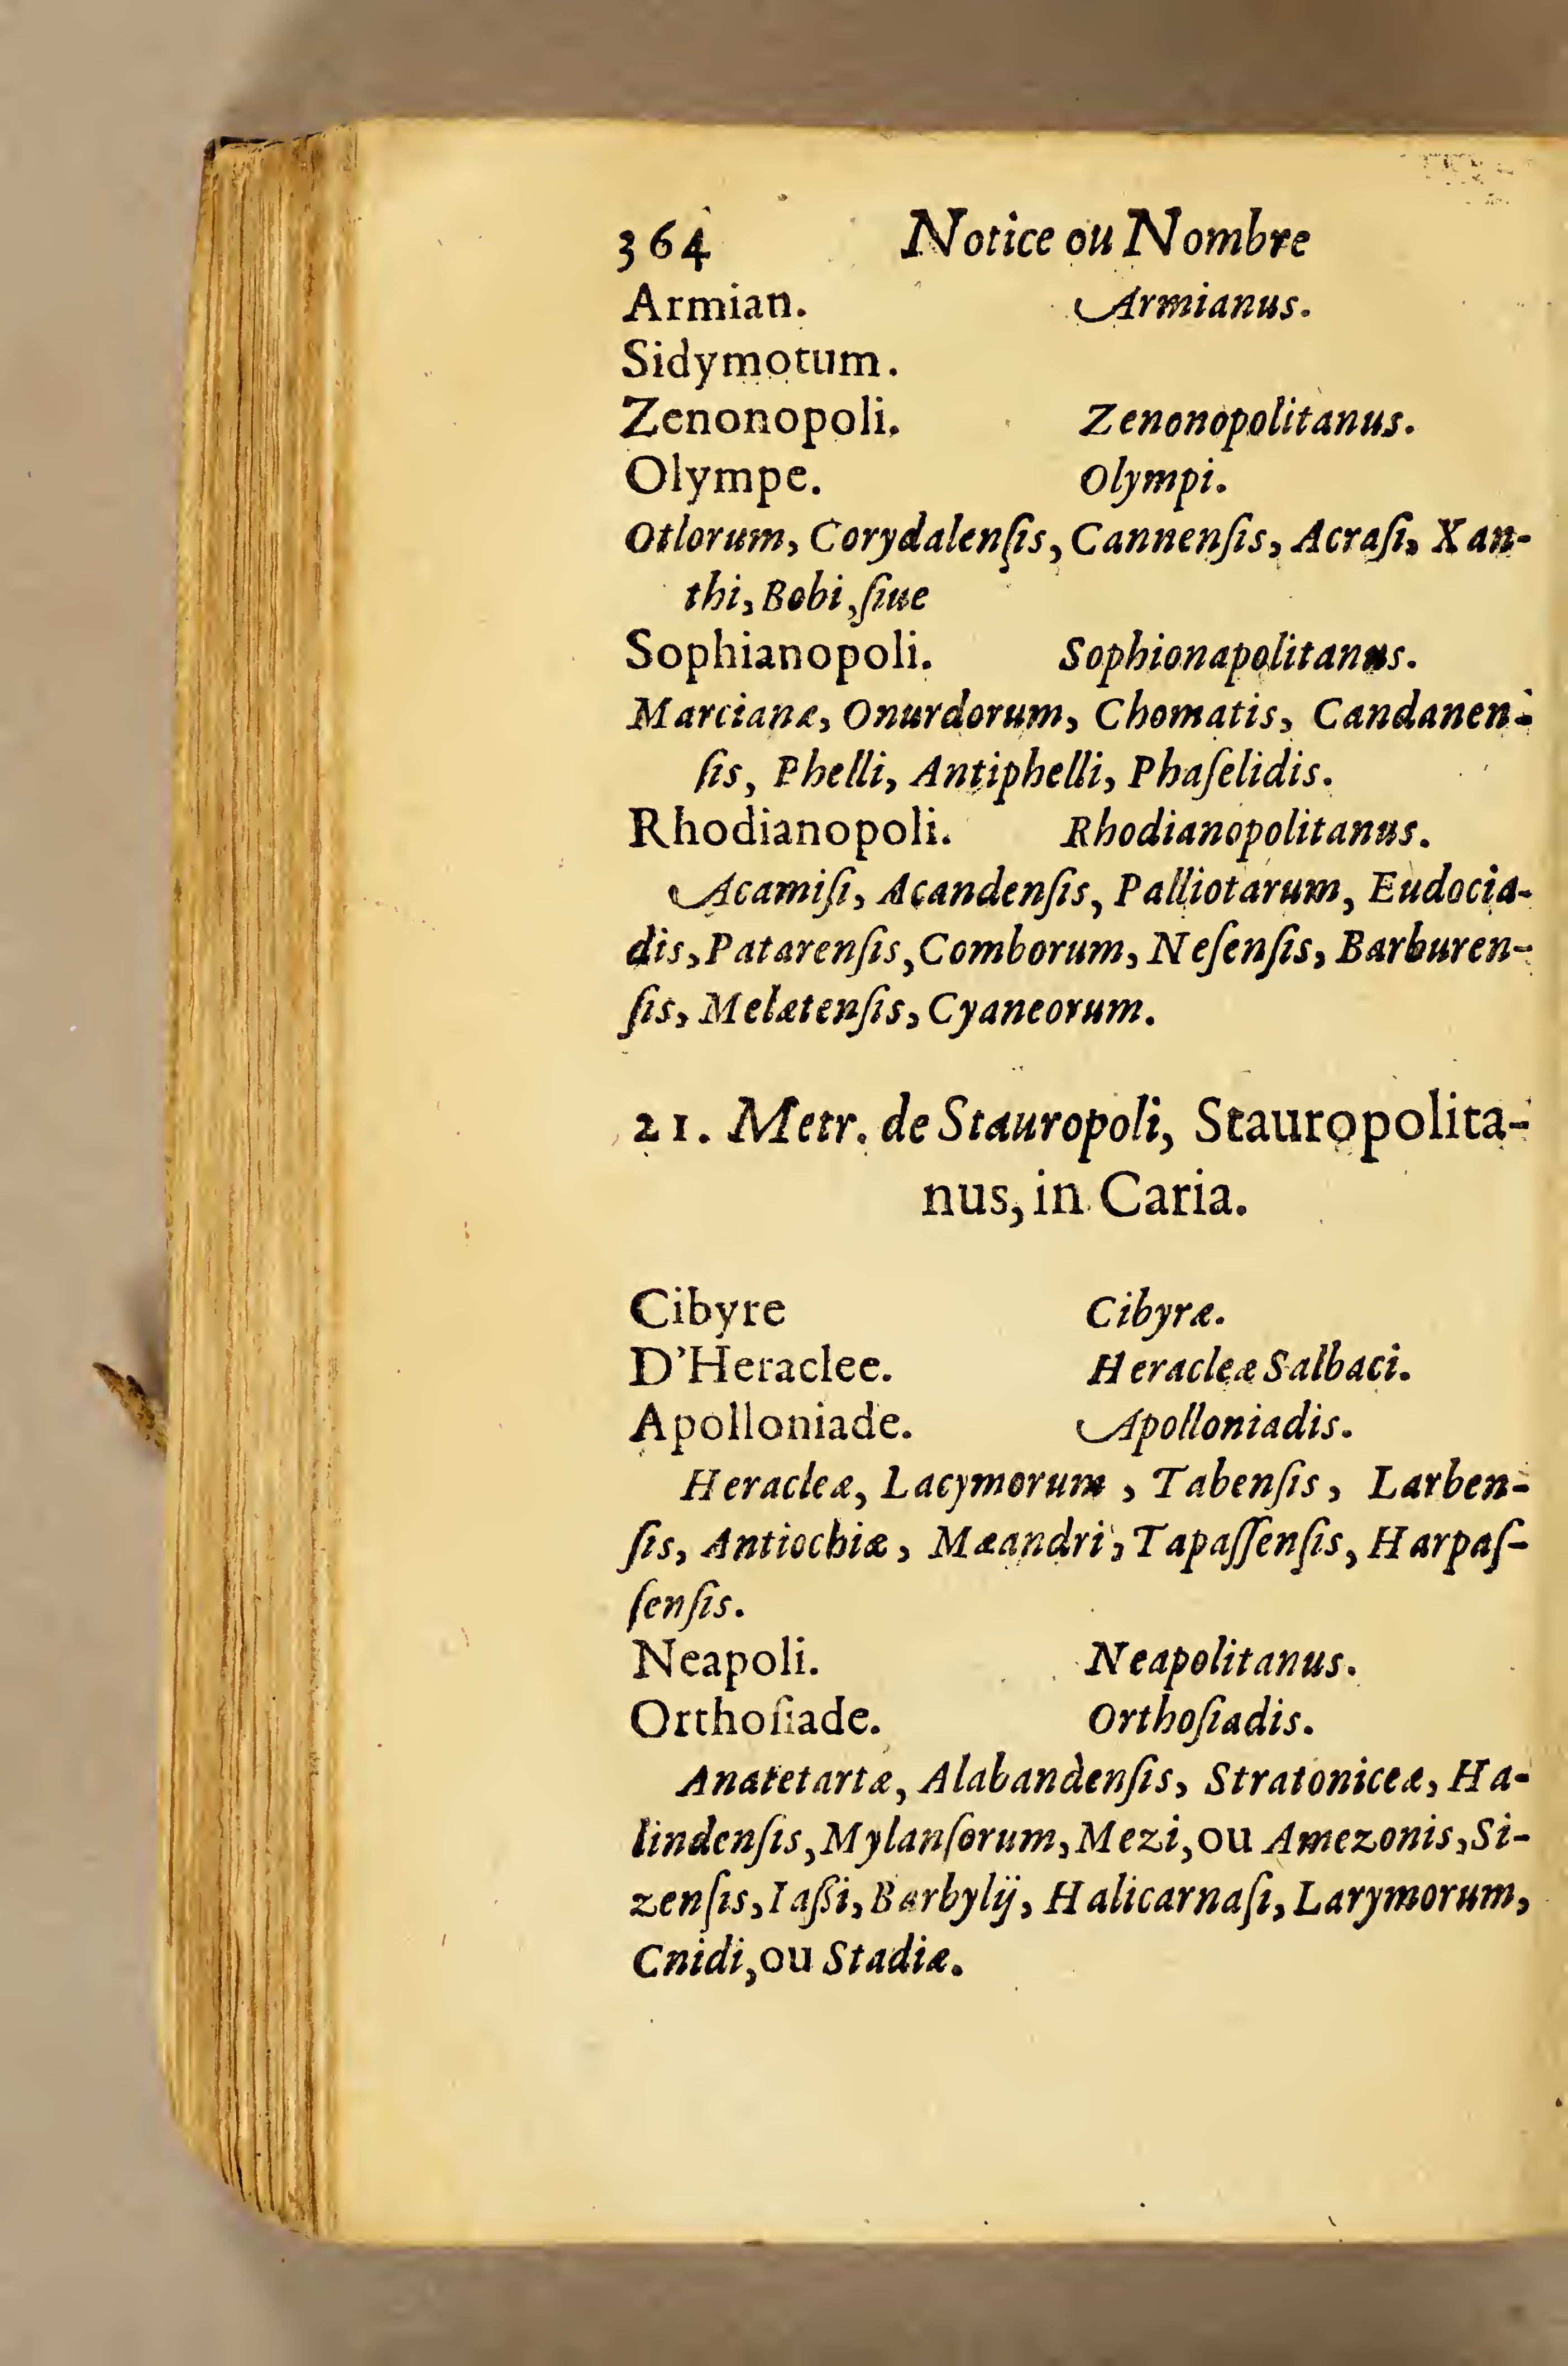 364 Notice ou Nombre
Armian. Armianus.
Sidymotum.
Zenonopoli. Zenonopolitanus.
Olympe. Olympi.
Otlorum, Corydalenſis, Cannenſis, Acraſi, Xan-
thi, Bobi, ſiue
Sophianopoli. Sophionapolitanus.
Marcianæ, Onurdorum, Chomatis, Candanen-
ſis, Phelli, Antiphelli, Phaſelidis.
Rhodianopoli. Rhodianopolitanus.
Acamiſi, Acandenſis, Palliotarum, Eudocia-
dis, Patarenſis, Comborum, Neſenſis, Barburen-
ſis, Melætenſis, Cyaneorum.
21. Metr. de Stauropoli, Stauropolita-
nus, in Caria.
Cibyre Cibyræ.
D'Heraclee. Heracleæ Salbaci.
Apolloniade. Apolloniadis.
Heracleæ, Lacymorum, Tabenſis, Larben-
ſis, Antiochiæ, Mæandri, Tapaſſenſis, Harpaſ-
ſenſis.
Neapoli. Neapolitanus.
Orthoſiade. Orthoſiadis.
Anatetartæ, Alabandenſis, Stratoniceæ, Ha-
lindenſis, Mylanſorum, Mezi, ou Amezonis, Si-
zenſis, Iaſſi, Barbylij, Halicarnaſi, Larymorum,
Cnidi, ou Stadiæ.